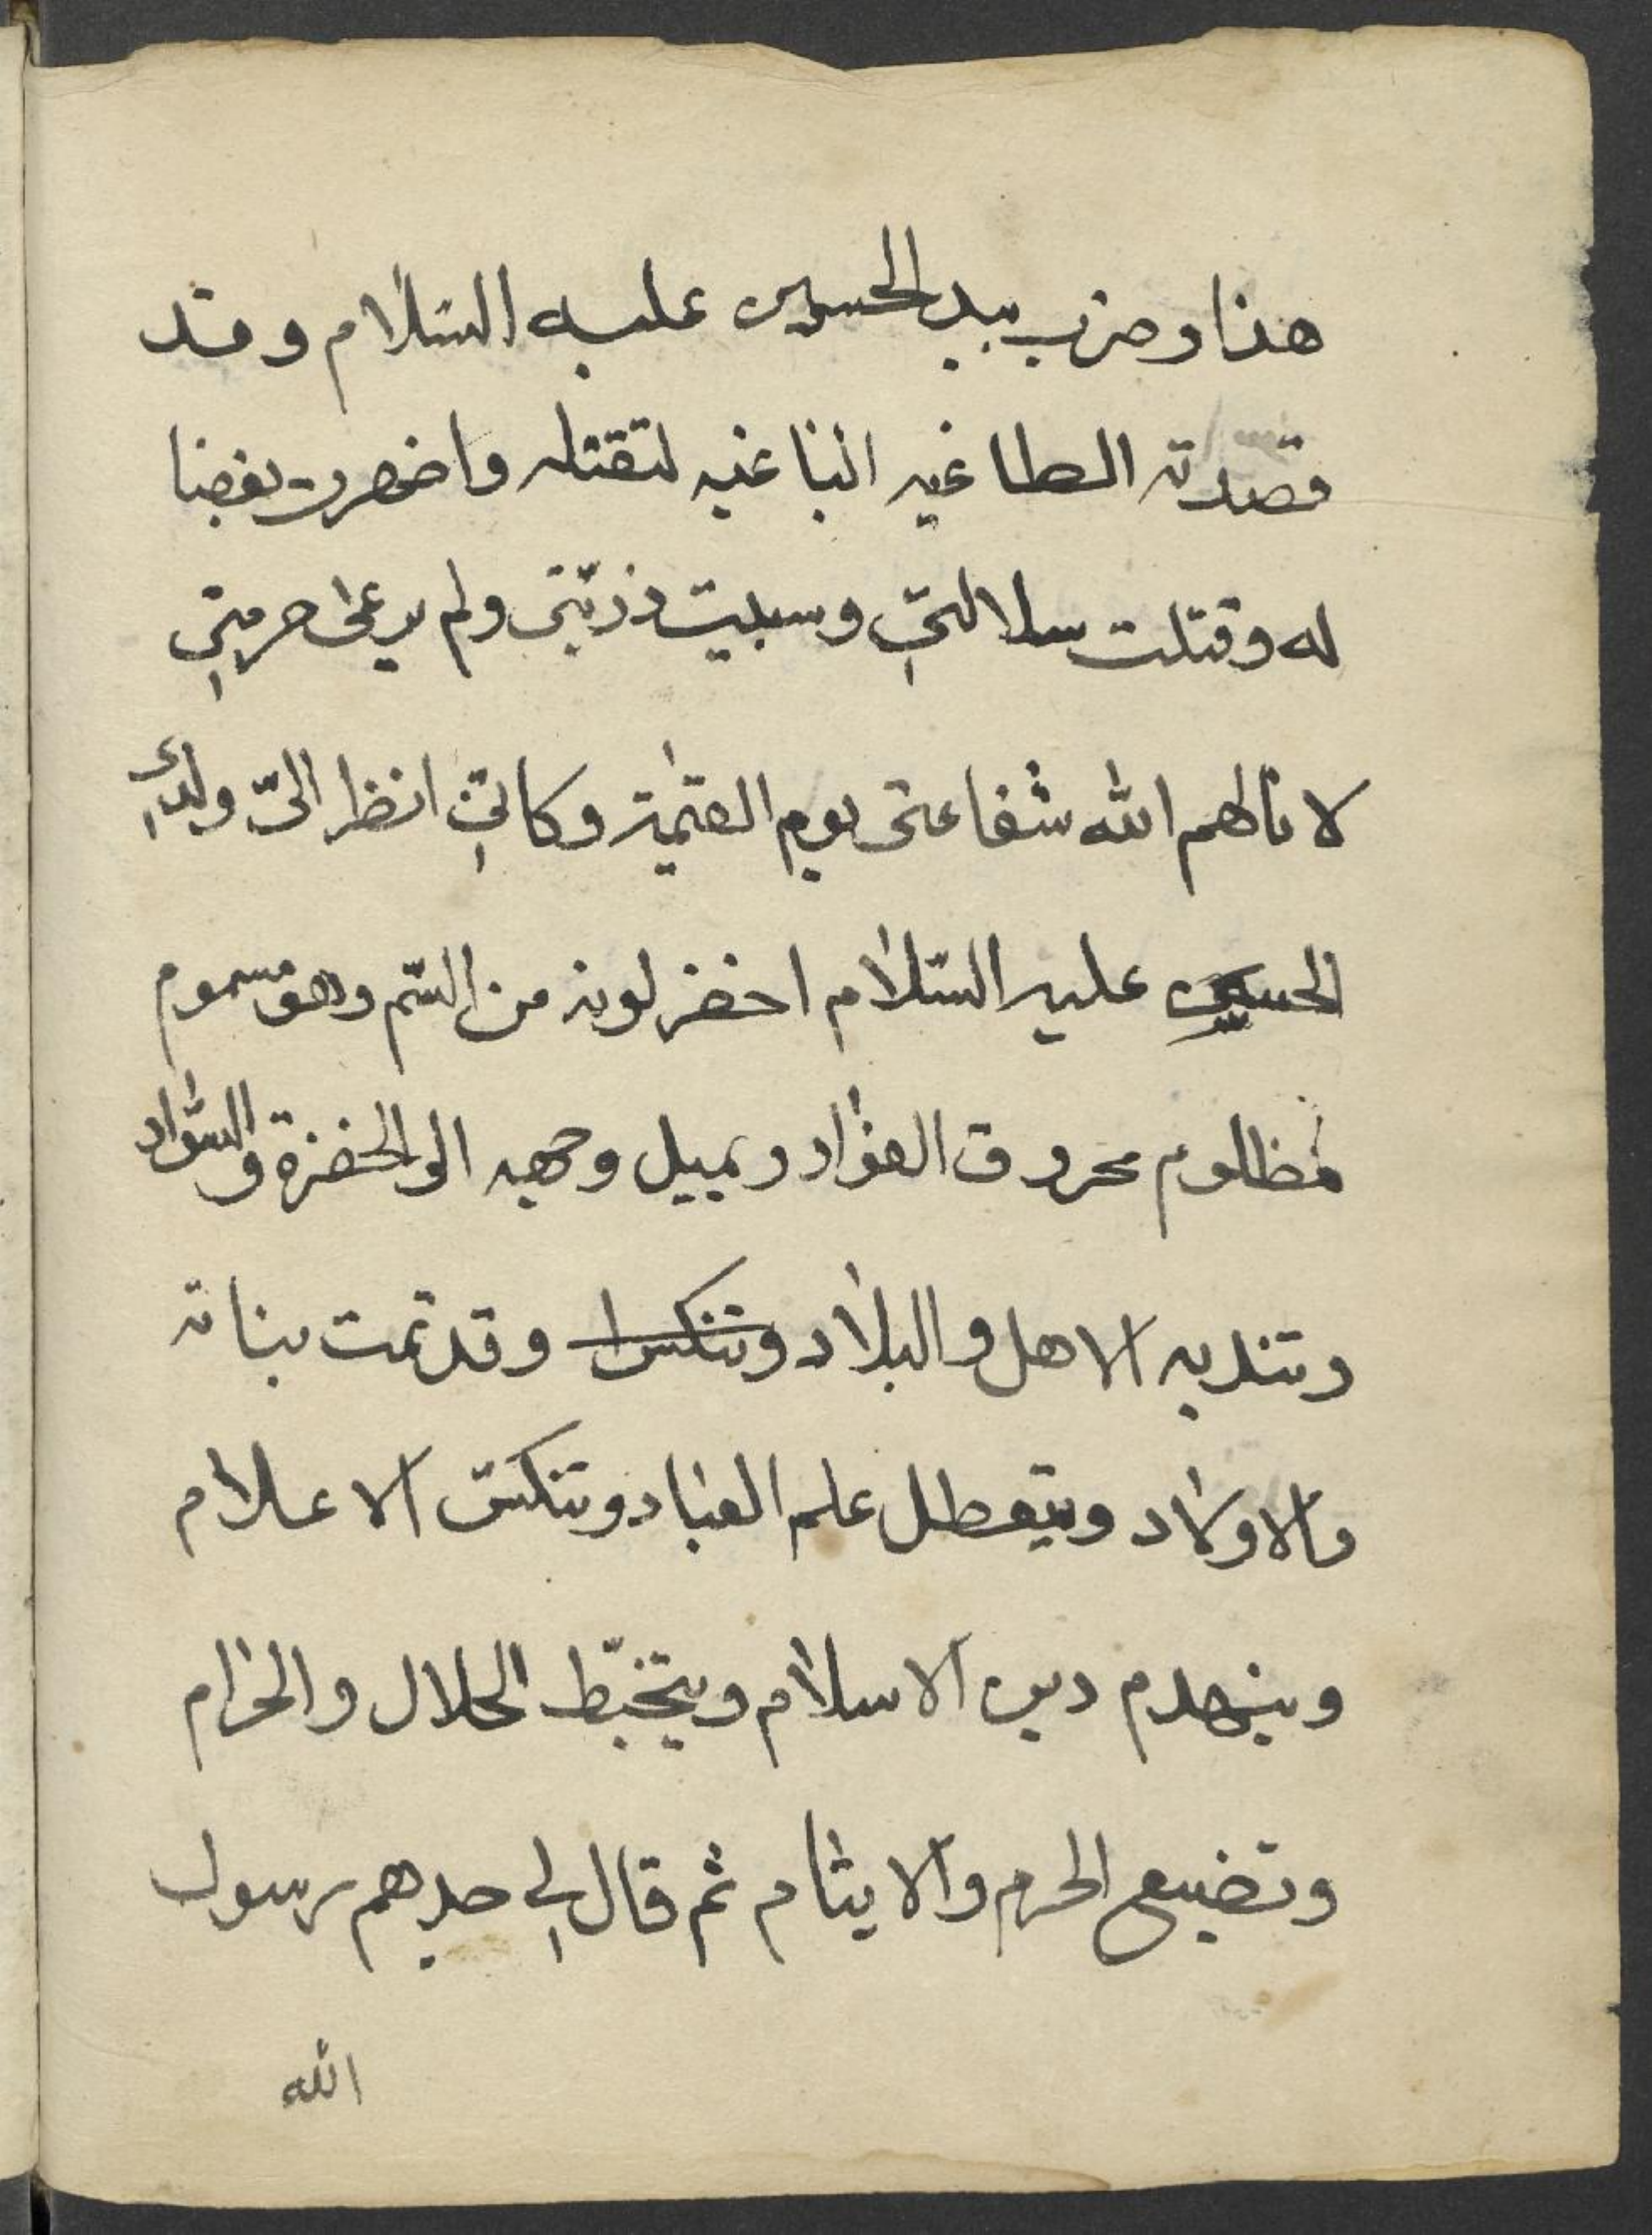 هذا وضرب بيد الحسين عليه السّلام وقد
قصدته الطاغيه الباغيه لتقتله واضمرت بغضا
له وقتلت سلالتي وسبيت ذريّتي ولم يرعى حرمتي
لا نالهم الله شفاعتى يوم القيٰمة وكانّي انظر الىّ ولدي
الحسين عليه السّلام اخضر لونه من السّم وهو مسموم
مظلوم محروق الفؤاد ويميل وجهه الى الخضرة والسّواد
وتندبه الاهل والبلاد وتنكس ا وقد تمت بناته
والاولاد ويتعطل علم العباد وتنكسّ الاعلام
وينهدم دين الاسلام ويتخبّط الحلال والحرام
وتضيع الحرم والايتام ثم قال لي جدهم رسول
الله